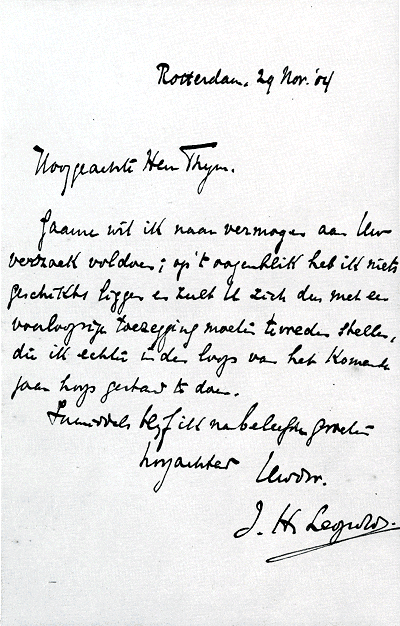 Rotterdam. 29 Nov. '04
Hooggeachte Heer Thym.
Gaarne wil ik naar vermogen aan Uw
verzoek voldoen; op 't oogenblik heb ik niets
geschikts liggen en zult U zich dus met een
voorloopige toezegging moeten tevreden stellen,
die ik echter in den loop van het komende
jaar hoop gestand te doen.
Inmiddels blijf ik na beleefde groeten
hoogachtend Uwdw.
J. H. Leopold.